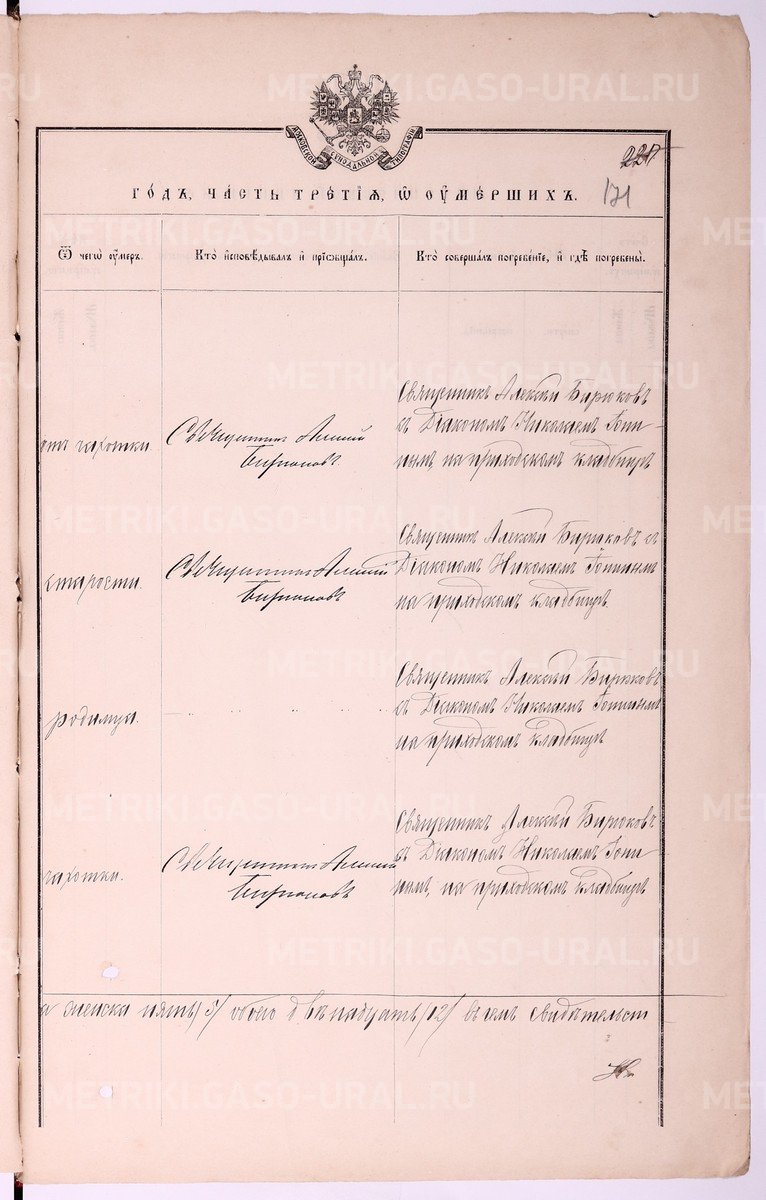 МОСКОВСКОЙ СѴНОДАЛЬНОЙ ТИПОГРАФІИ
227
ГО́ДЪ, ЧА́СТЬ ТРЕ́ТІѦ, Ѡ҆ ОУ҆МЕ́РШИХЪ.
171
Ѿ чегѡ̀ оу҆́меръ.
Кто̀ и҆сповѣ́дывалъ и҆ прїѡбща́лъ.
Кто̀ соверша́лъ погребе́нїе, и҆ гдѣ̀ погребены̀.
отъ чахотки
Священникъ Алексій
Бирюковъ.
Священникъ Алексѣй Бирюковъ
съ Діакономъ Николаемъ Топи-
нымъ, на приходскомъ кладбищѣ
старости.
Священникъ Алексій
Бирюковъ
Священникъ Алексѣй Бирюковъ съ
Діакономъ Николаемъ Топинымъ
на приходскомъ кладбищѣ.
родимца.
Священникъ Алексѣй Бирюковъ
съ Діакономъ Николаемъ Топинымъ
на приходскомъ кладбищѣ
чахотки.
Священникъ Алексій
Бирюковъ
Священникъ Алексѣй Бирюковъ
съ Діакономъ Николаемъ Топи-
нымъ, на приходскомъ кладбищѣ
а женска пять /5/ обоего двѣнадцать /12/ въ чемъ свидѣтельст
METRIKI.GASO-URAL.RU